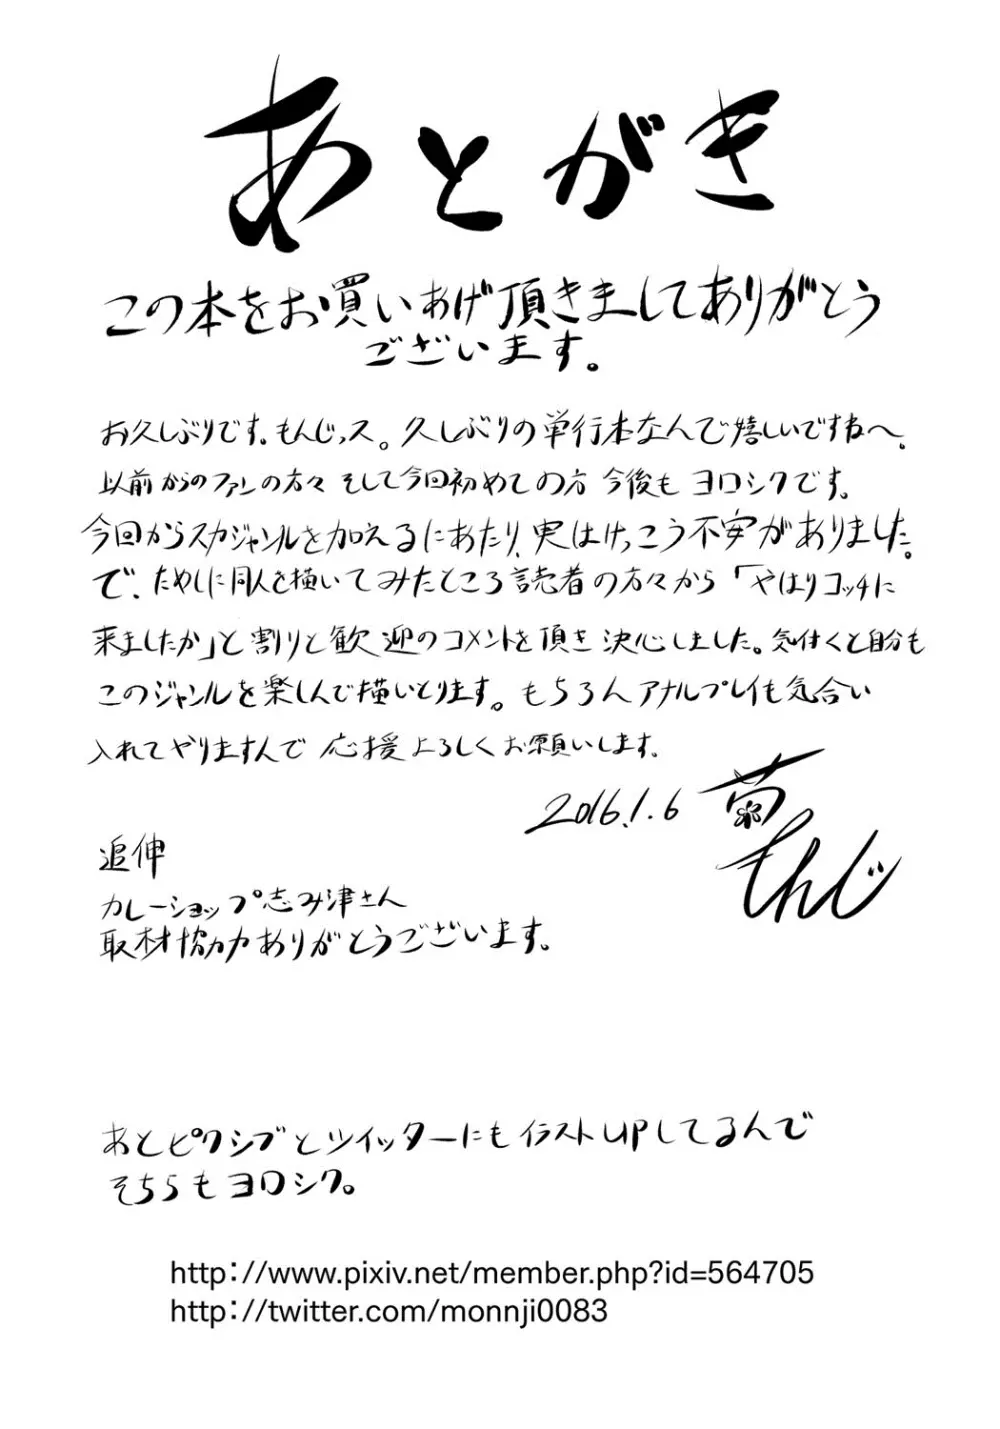 あとがき
この本をお買いあげ頂きましてありがとう
ございます。
お久しぶりです、もんじっス。久しぶりの単行本なんで嬉しいですねへ、
以前からのファンの方々 そして今回初めての方 今後も ヨロシクです。
今回からスカジャンルを加えるにあたり、実はけっこう不安がありました。
で、ためしに同人を描いてみたところ読者の方々から「やはりコッチに
来ましたか」と割りと歓迎のコメントを頂き決心しました。気付くと自分も
このジャンルを楽しんで描いとります。もちろんアナルプレイも気合い
入れてやりますんで 応援よろしくお願いします。
2016.1.6 菊
もんじ
追伸
カレーショップ志み津さん
取材協力ありがとうございます。
あとピクシブとツイッターにもイラストUPしてるんで
そちらもヨロシク。
http://www.pixiv.net/member.php?id=564705
http://twitter.com/monnji0083